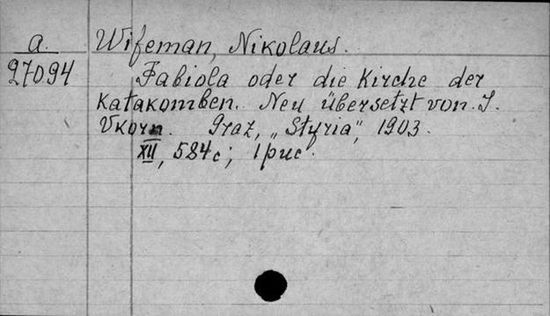 a.
27094
Wifeman, Nikolaus.
Fabiola oder die Kirche der
Katakomben. Neu übersetzt von J.
Vkorn. Graz, „Styria“, 1903.
XII, 584 с; 1 рис.